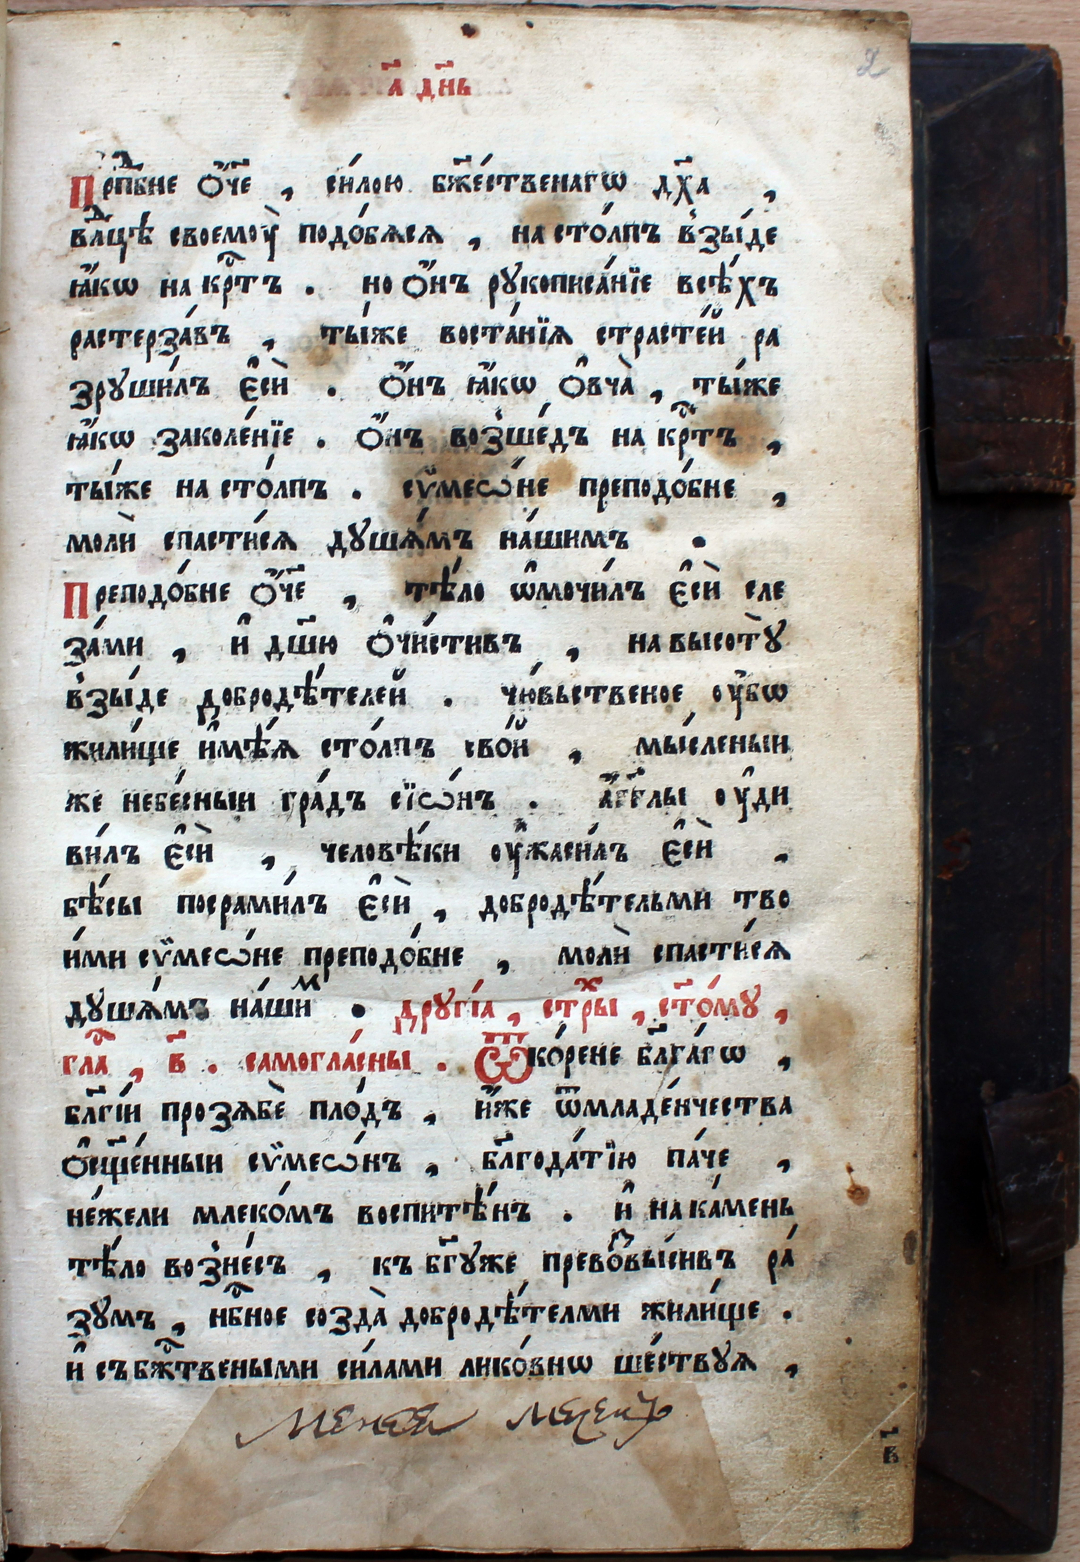 а҃ дн҃ь
2
Прпⷣбне ѻ҆́ч҃е , си́лою бж҃е́ственагѡ дх҃а ,
влⷣцѣ своемоу̀ подо́бѧсѧ , на сто́лпъ в̾зы́де
ꙗ҆́кѡ на крⷭ҇тъ . но ѻ҆́нъ рꙋкописа́нїе всѣ́хъ
растерза́въ , ты́же воста́нїѧ страсте́й ра
зрꙋши́лъ є҆сѝ . ѻ҆́нъ ꙗ҆́кѡ ѻ҆вча̀ , ты́же
ꙗ҆́кѡ заколе́нїе . ѻ҆́нъ воз̾ше́дъ на крⷭ҇тъ ,
ты́же на сто́лпъ . сѷмеѡ́не преподо́бне ,
молѝ спасти́сѧ дꙋша́мъ на́шимъ .
Преподо́бне ѻ҆́ч҃е , тѣ́ло ѡ҆мочи́лъ є҆сѝ сле
за́ми , и҆ дш҃ю ѻ҆чи́стивъ , на высотꙋ̀
в̾зы́де добродѣ́телей . чю́вьственое оу҆́бѡ
жили́ще и҆мѣ́ѧ сто́лпъ сво́й , мы́сленыи
же небе́сныи гра́дъ сїѡ́нъ . а҆́гг҃лы оу҆ди
ви́лъ є҆сѝ , человѣ́ки оу҆жаси́лъ є҆сѝ ,
бѣ́сы посрами́лъ є҆сѝ , добродѣ́тельми тво
и́ми сѷмеѡ́не преподо́бне , молѝ спасти́сѧ
дꙋша́мъ на́шиⷨ . дрꙋгі́ѧ , стⷯры , ст҃о́мꙋ ,
глаⷭ҇ , в҃ . самогла́сны . Ѿ ко́рене бл҃га́гѡ ,
бл҃гі́и прозѧбѐ пло́дъ , и҆́же ѿмладе́нчества
ѻ҆сщ҃е́нныи сѷмеѡ́нъ , бл҃года́тїю па́че ,
не́жели млеко́мъ воспитѣ́нъ . и҆ на ка́мень
тѣ́ло воз̾не́съ , къ бг҃ꙋже превоⷥвы́сивъ ра́
зꙋмъ , нбⷭ҇ное созда̀ добродѣ́телми жили́ще .
и҆ съ бжⷭ҇твеными си́лами лико́внѡ ше́ствꙋѧ ,
в҃